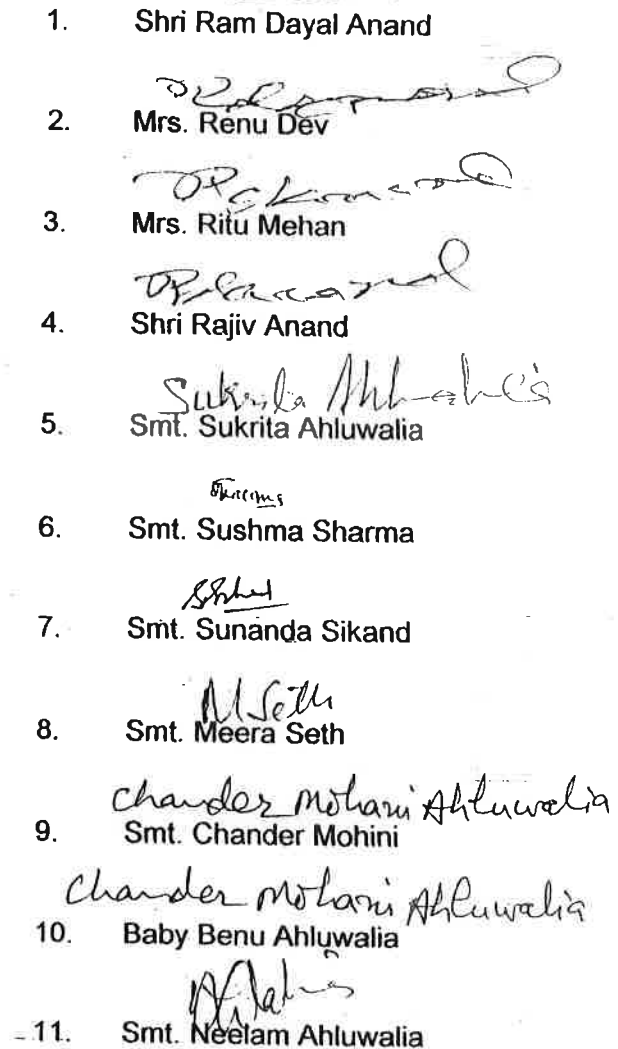 1. Shri Ram Dayal Anand
2. Mrs. Renu Dev
3. Mrs. Ritu Mehan
4. Shri Rajiv Anand
Sukrita Ahluwalia
5. Smt. Sukrita Ahluwalia
6. Smt. Sushma Sharma
7. Smt. Sunanda Sikand
M Seth
8. Smt. Meera Seth
Chander Mohani Ahluwalia
9. Smt. Chander Mohini
Chander Mohani Ahluwalia
10. Baby Benu Ahluwalia
11. Smt. Neelam Ahluwalia